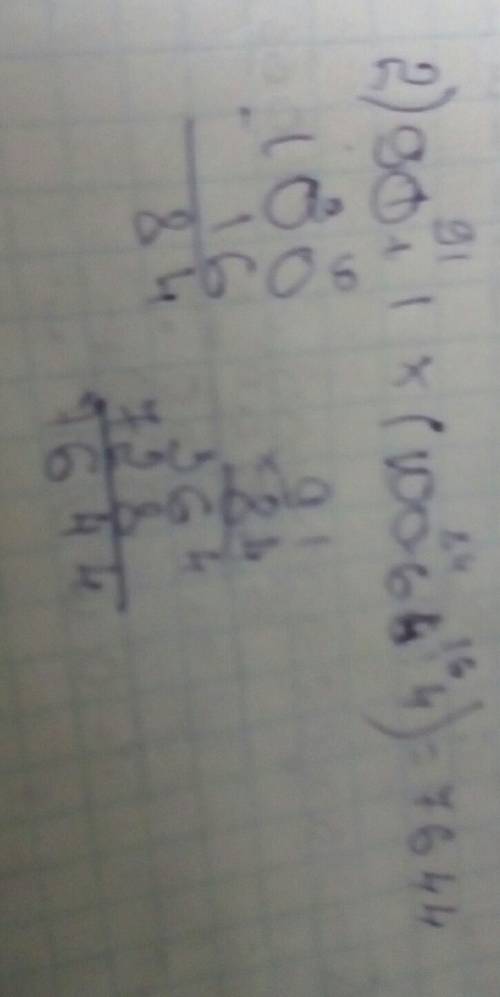 91 84 16
2) 90 + 1 × (100 - 64 : 4) = 7644
100
16
84
91
× 84
364
728
7644